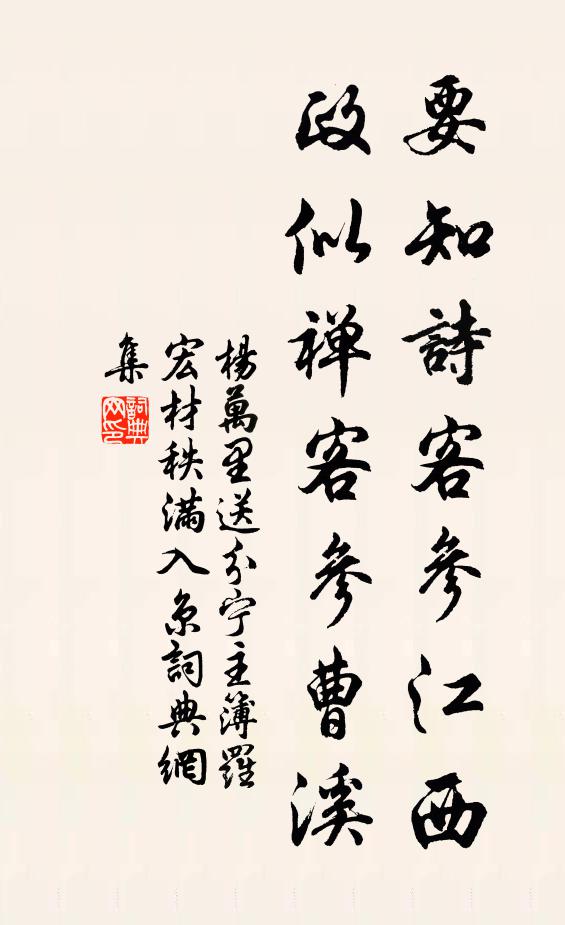 要知詩客參江西
政似禅客參曹溪
楊萬里送分宁主簿羅
宏材秩滿入京詞典網
集
詞典网印